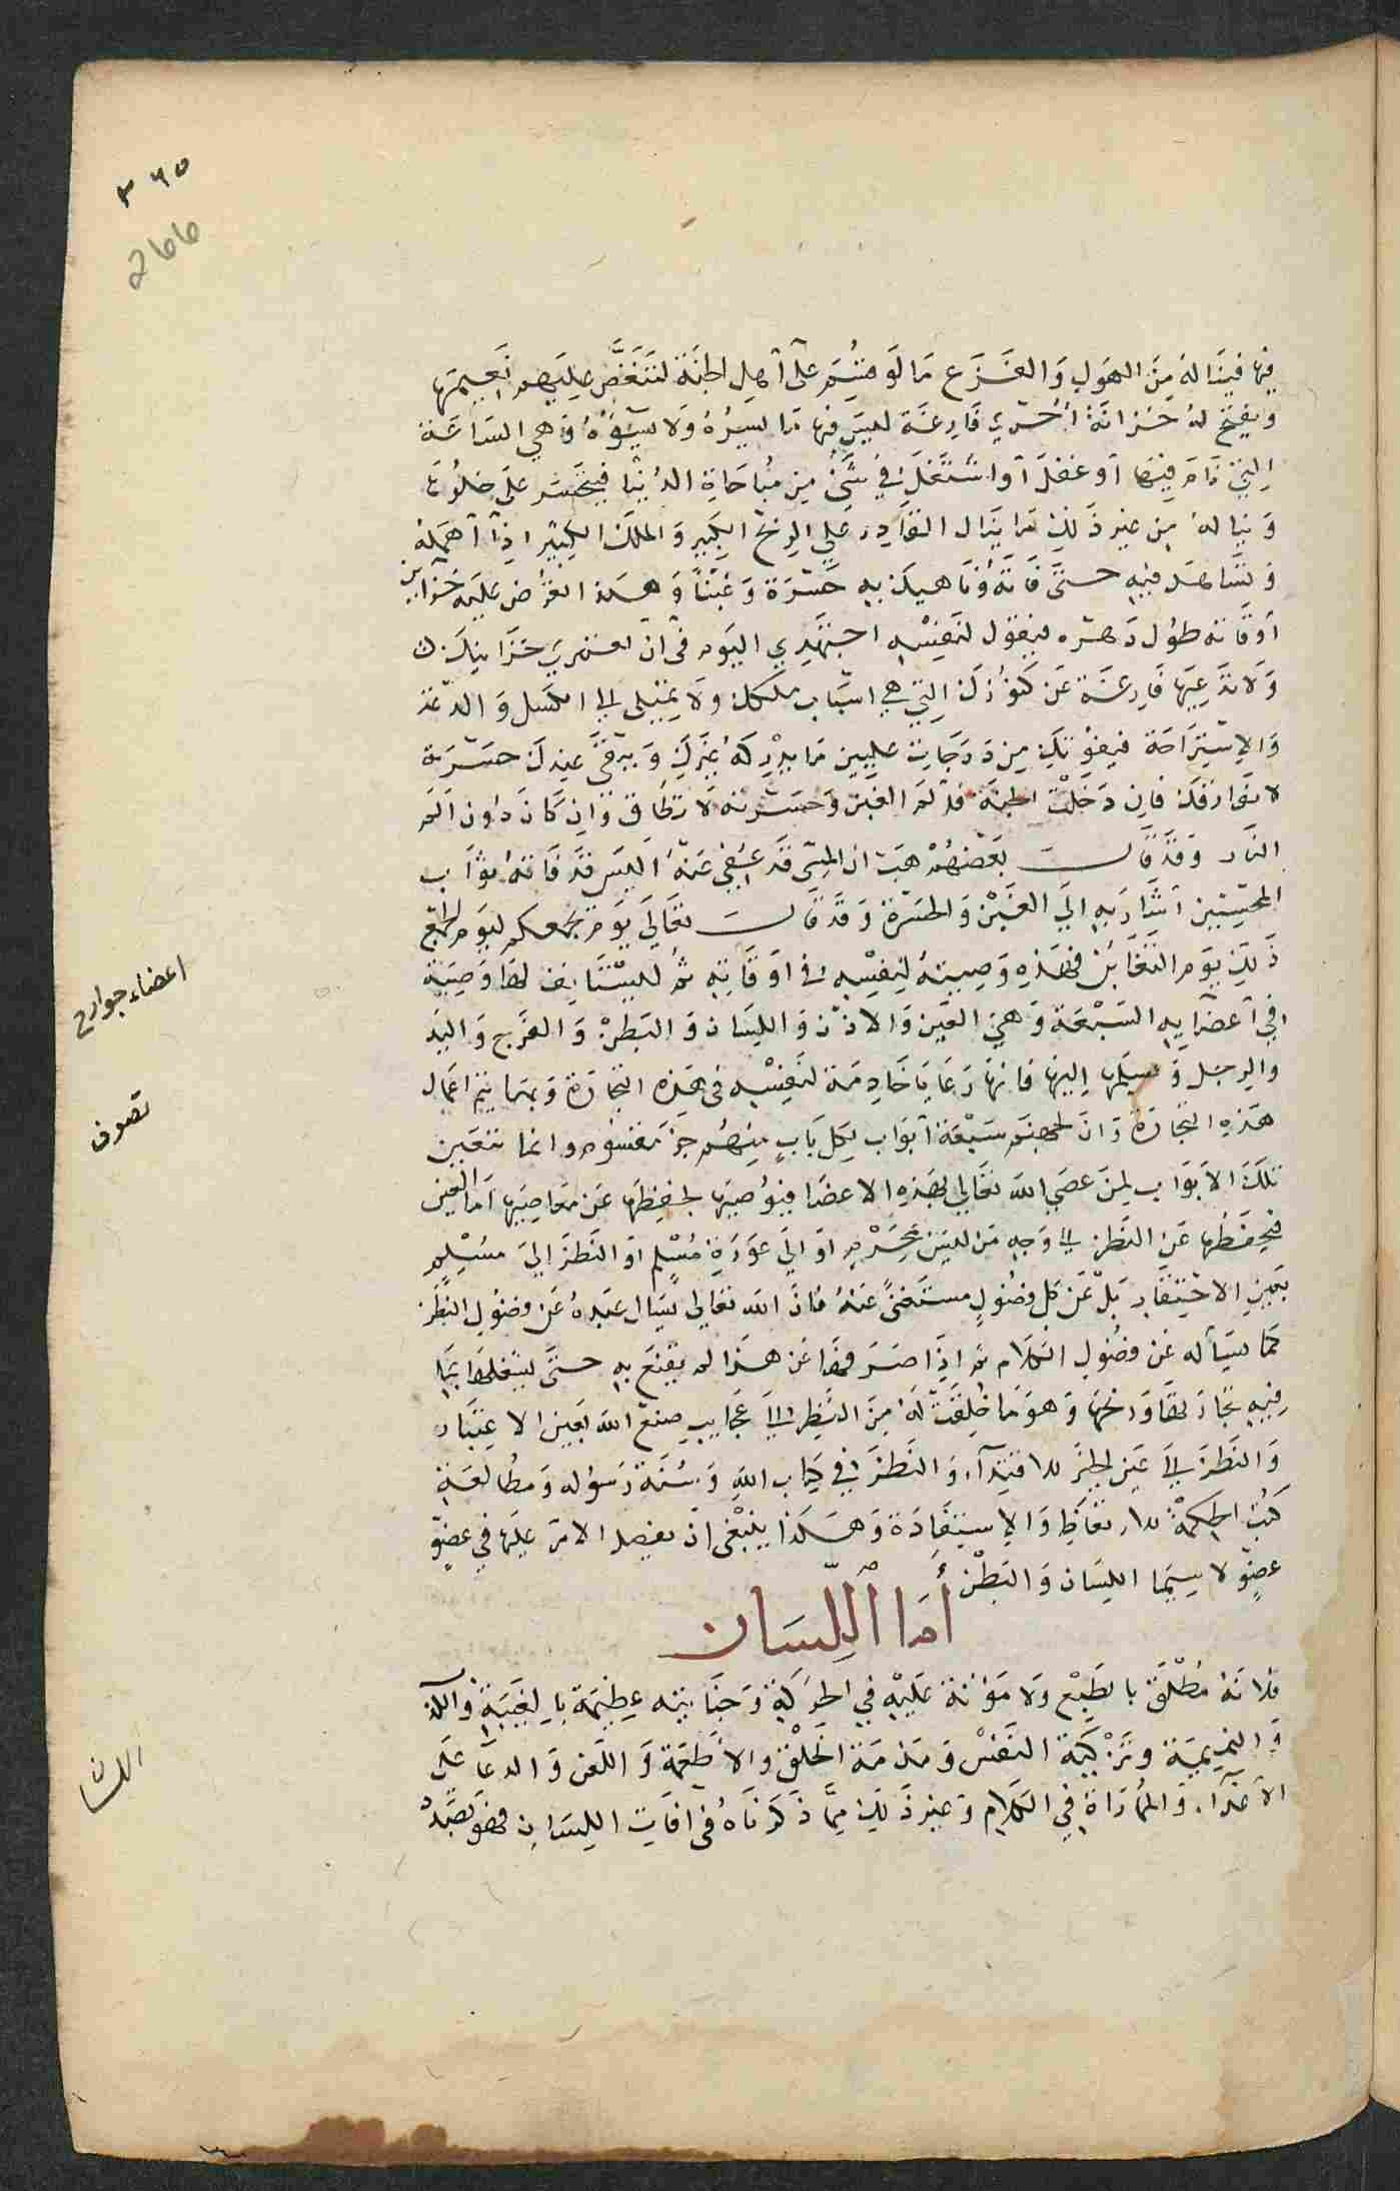 ٣٦٥
266
فيها فيناله من الهول والفزع ما لو قسم على اهل الجنة لتنغص عليهم نعيمها
ويفتح له خزانة اخرى فارغة ليس فيها ما يسره ولا يسؤه وهي الساعة
التي نام فيها او غفل او اشتغل في شئ من مباحاة الدنيا فيتحسر على خلوها
ويناله من غبن ذلك ما ينال القادر على الربح الكبير والملك الكبير اذا اهمله
وتساهل فيه حتى فاته وناهيك به حسرة وغبنا وهكذا تعرض عليه خزاين
اوقاته طول دهره فيقول لنفسه اجتهدي اليوم في ان تعمري خزاينك
ولا تدعيها فارغة عن كنوزك التي هي اسباب ملكك ولا تميلى الى الكسل والدعة
والاستراحة فيفوتك من درجات عليين ما يدركه غيرك ويبقى عندك حسرة
لا تفارقك فان دخلت الجنة فالم الغبن وحسرته لا تطاق وان كان دون الم
النار وقد قال بعضهم هب ان المسى قد عفى عنه اليس قد فاته ثواب
المحسنين اشار به الى الغبن والحسرة وقد قال تعالى يوم يجمعكم ليوم الجمع
ذلك يوم التغابن فهذه وصيته لنفسه في اوقاته ثم ليستانف لها وصية
في اعضايه السبعة وهي العين والاذن واللسان والبطن والفرج واليد
والرجل وتسليمها اليها فانها رعايا خادمة لنفسه فى هذه التجارة وبها يتم اعمال
هذه التجارة وان لجهنم سبعة ابواب لكل باب منهم جز مقسوم وانما تتعين
تلك الابواب لمن عصى الله تعالى بهذه الاعضا فيوصيها بحفظها عن معاصيها اما العين
فيحفظها عن النظر الى وجه من ليس بمحرم او الى عورة مسلم او النظر الى مسلم
بعين الاحتقار بل عن كل فضول مستغنى عنه فان الله تعالى يسال عبده عن فضول النظر
كما يسأله عن فضول الكلام ثم اذا صرفها عن هذا لم يقنع به حتى يشغلها بما
فيه تجارتها وربحها وهو ما خلقت له من النظر الى عجايب صنع الله بعين الاعتبار
والنظر الى عين الخير للاقتدآء والنظر في كتاب الله وسنة رسوله ومطالعة
كتب الحكمة للاتعاظ والاستفادة وهكذا ينبغى ان يفصل الامر عليها في عضو
عضو لا سيما اللسان والبطن
أما اللسان
فلانه مطلق بالطبع ولا مؤنة عليه في الحركة وجنايته عظيمة بالغيبة والكذب
والنميمة وتزكية النفس ومذمة الخلق والاطعمة واللعن والدعا على
الاعدآء والمماراة في الكلام وغير ذلك مما ذكرناه فى افات اللسان فهو بصدد
اعضاء جوارح
تصوف
اللسان